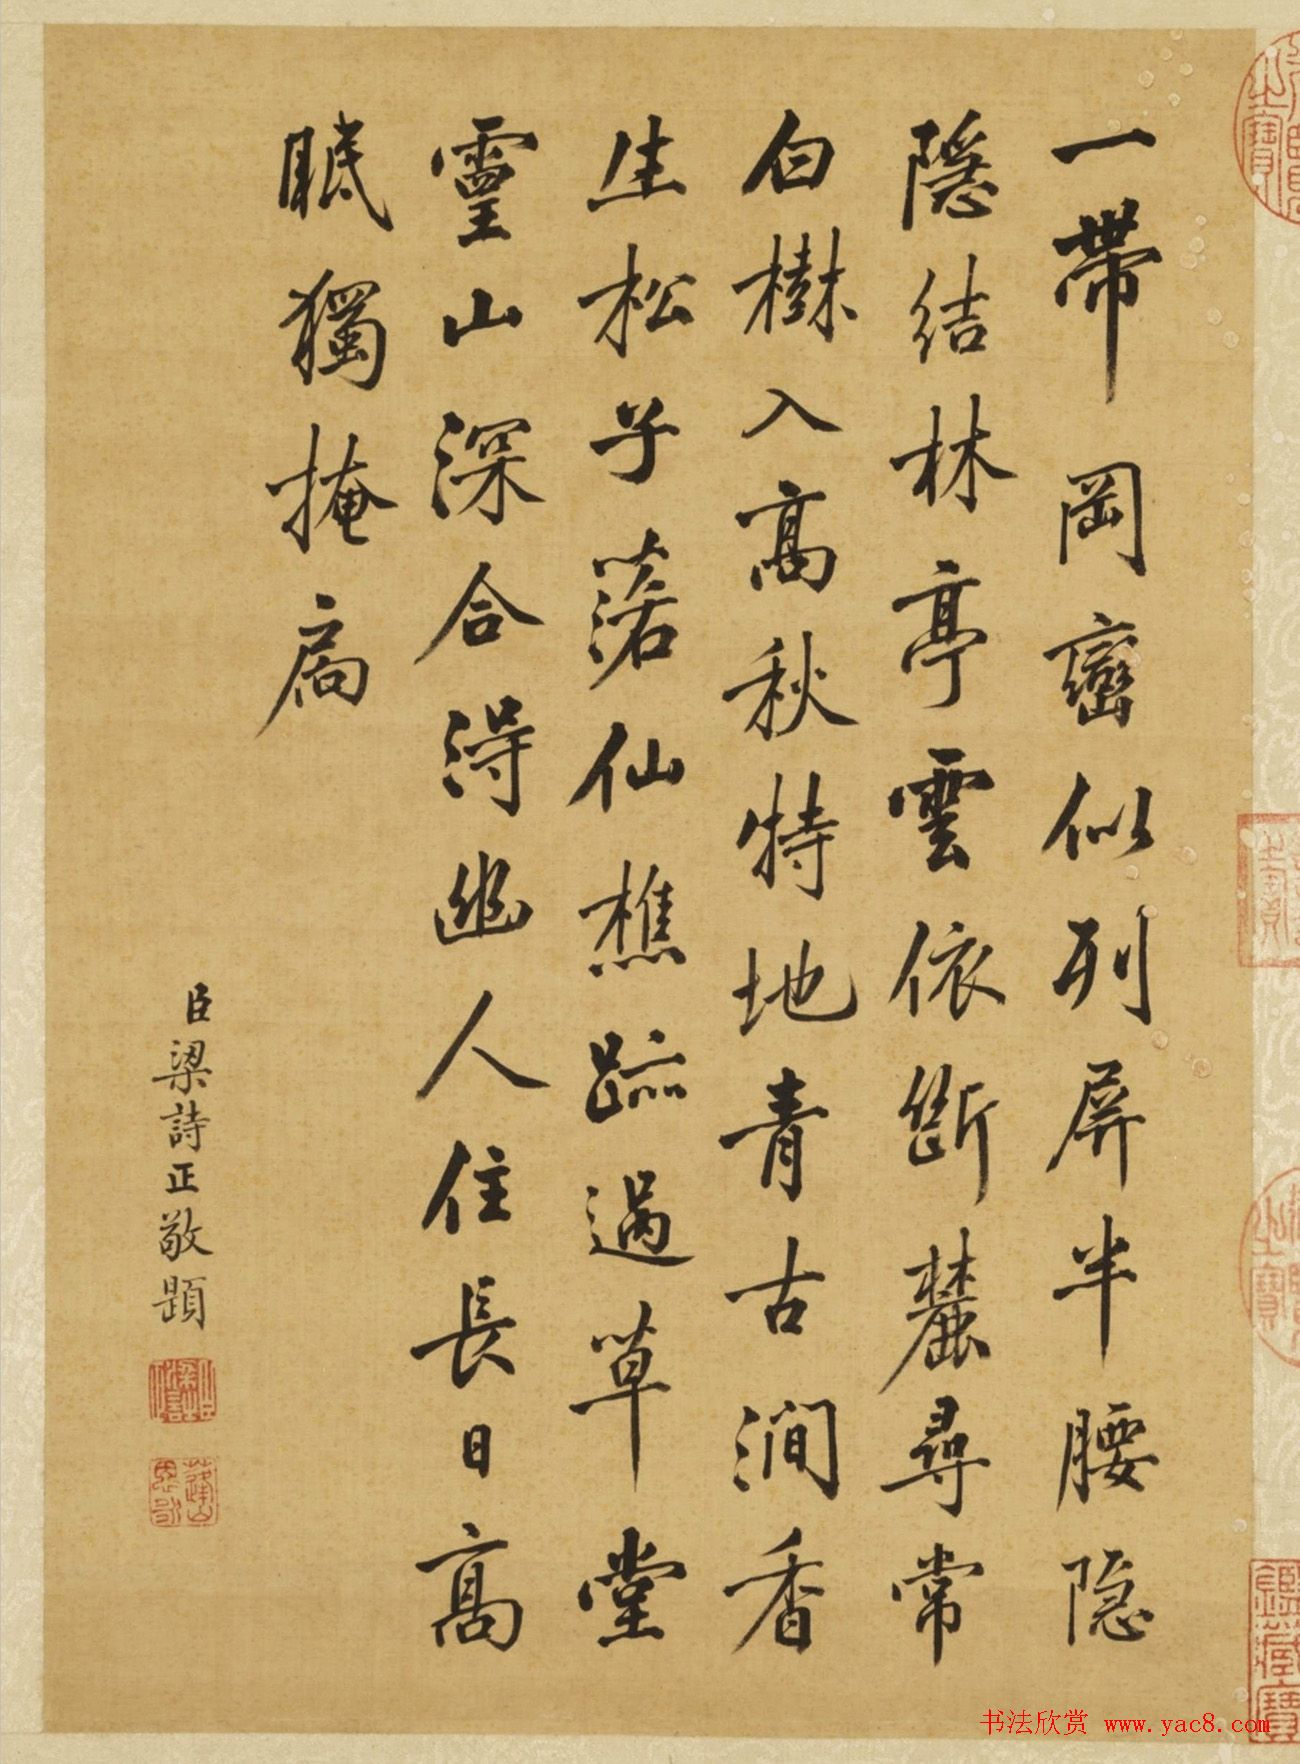 一帶岡巒似列屏半腰隱
隱結林亭雲依斷麓尋常
白樹入高秋特地青古澗香
生松子落仙樵跡過草堂
靈山深合得幽人住長日高
眠獨掩扃
臣梁詩正敬題
書法欣赏 www.yac8.com